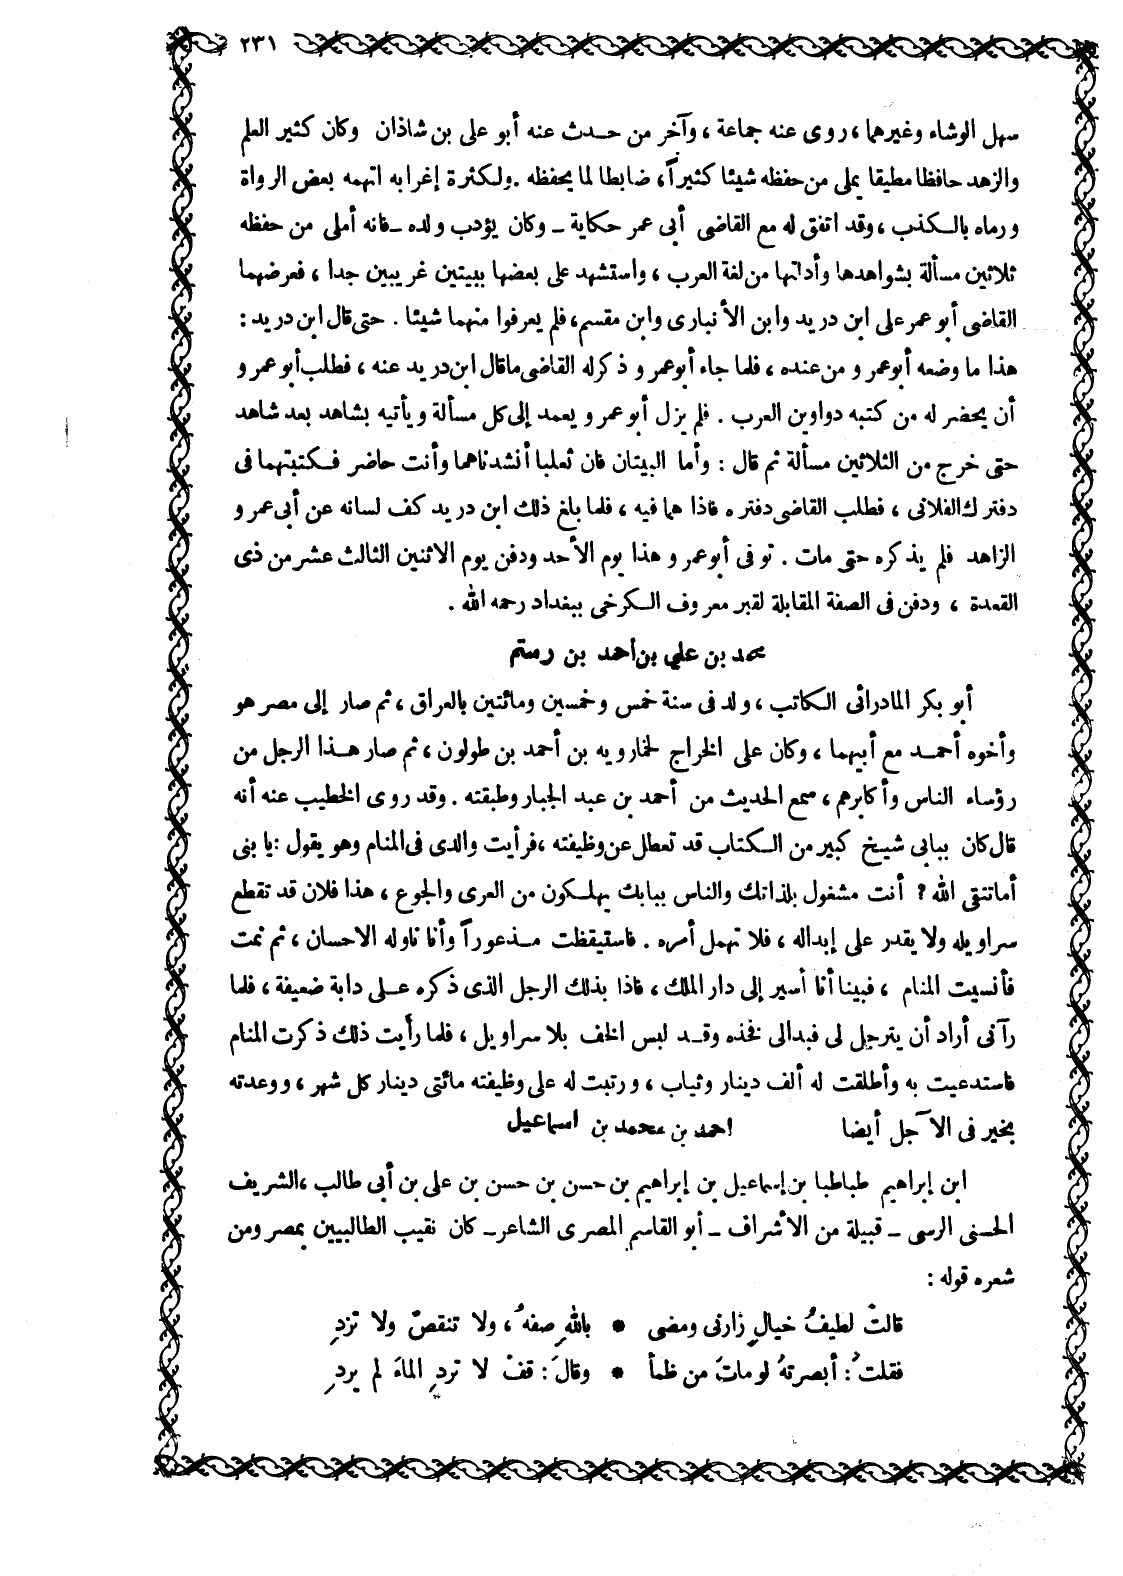 ٢٣١
سهل الوشاء وغيرهما ، روى عنه جماعة ، وآخر من حـدث عنه أبو على بن شاذان وكان كثير العلم
والزهد حافظا مطيقا يملى من حفظه شيئا كثيراً ، ضابطا لما يحفظه . ولكثرة إغرابه اتهمه بعض الرواة
ورماه بالـكذب ، وقد اتفق له مع القاضى أبى عمر حكاية ــ وكان يؤدب ولده ــ فانه أملى من حفظه
ثلاثين مسألة بشواهدها وأدلتها من لغة العرب ، واستشهد على بعضها ببيتين غريبين جدا ، فعرضهما
القاضى أبو عمر على ابن دريد وابن الأنبارى وابن مقسم ، فلم يعرفوا منهما شيئا . حتى قال ابن دريد :
هذا ما وضعه أبوعمر و من عنده ، فلما جاء أبوعمر و ذكر له القاضى ماقال ابن دريد عنه ، فطلب أبو عمر و
أن يحضر له من كتبه دواوين العرب . فلم يزل أبو عمر و يعمد إلى كل مسألة ويأتيه بشاهد بعد شاهد
حتى خرج من الثلاثين مسألة ثم قال : وأما البيتان فان ثعلبا أنشدناهما وأنت حاضر فـكتبتهما فى
دفترك الفلانى ، فطلب القاضى دفتره فاذا هما فيه ، فلما بلغ ذلك ابن دريد كف لسانه عن أبى عمر و
الزاهد فلم يذكره حتى مات . توفى أبوعمر و هذا يوم الأحد ودفن يوم الاثنين الثالث عشر من ذى
القعدة ، ودفن فى الصفة المقابلة لقبر معروف الـكرخى ببغداد رحمه الله .
محمد بن علي بن أحمد بن رستم
أبو بكر المادرائى الـكاتب ، ولد فى سنة خمس وخمسين ومائتين بالعراق ، ثم صار إلى مصر هو
وأخوه أحمـد مع أبيهما ، وكان على الخراج لخمارويه بن أحمد بن طولون ، ثم صار هـذا الرجل من
رؤساء الناس وأكابرهم ، سمع الحديث من أحمد بن عبد الجبار وطبقته . وقد روى الخطيب عنه أنه
قال كان ببابى شيـخ كبير من الـكتاب قد تعطل عن وظيفته ، فرأيت والدى فى المنام وهو يقول : يا بنى
أماتتقى الله ؟ أنت مشغول بلذاتك والناس ببابك يهلـكون من العرى والجوع ، هذا فلان قد تقطع
سراويله ولا يقدر على إبداله ، فلا تهمل أمره . فاستيقظت مـذعوراً وأنا ناوله الاحسان ، ثم نمت
فأنسيت المنام ، فبينا أنا أسير إلى دار الملك ، فاذا بذلك الرجل الذى ذكره عـلى دابة ضعيفة ، فلما
رآنى أراد أن يترجل لى فبدالى فخذه وقـد لبس الخف بلا سراويل ، فلما رأيت ذلك ذكرت المنام
فاستدعيت به وأطلقت له ألف دينار وثياب ، ورتبت له على وظيفته مائتى دينار كل شهر ، ووعدته
بخير فى الآجل أيضا احمد بن محمد بن اسماعيل
ابن إبراهيم طباطبا بن إسماعيل بن إبراهيم بن حسن بن حسن بن على بن أبى طالب ، الشريف
الحسنى الرسى ــ قبيلة من الأشراف ــ أبو القاسم المصرى الشاعر ــ كان نقيب الطالبيين بمصر ومن
شعره قوله :
قالتْ لطيفُ خيالٍ زارنى ومضى * باللهِ صفهُ ، ولا تنقصْ ولا تزدِ
فقلتُ : أبصرتهُ لو ماتَ من ظمأ * وقالَ : قفْ لا تردِ الماءَ لم يردِ